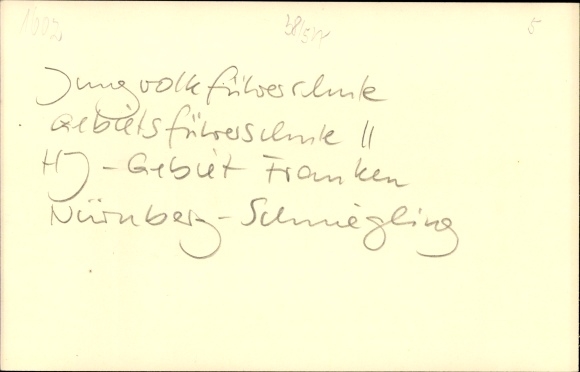 1602
5
Jungvolkführerschule
Gebietsführerschule II
HJ - Gebiet Franken
Nürnberg - Schniegling